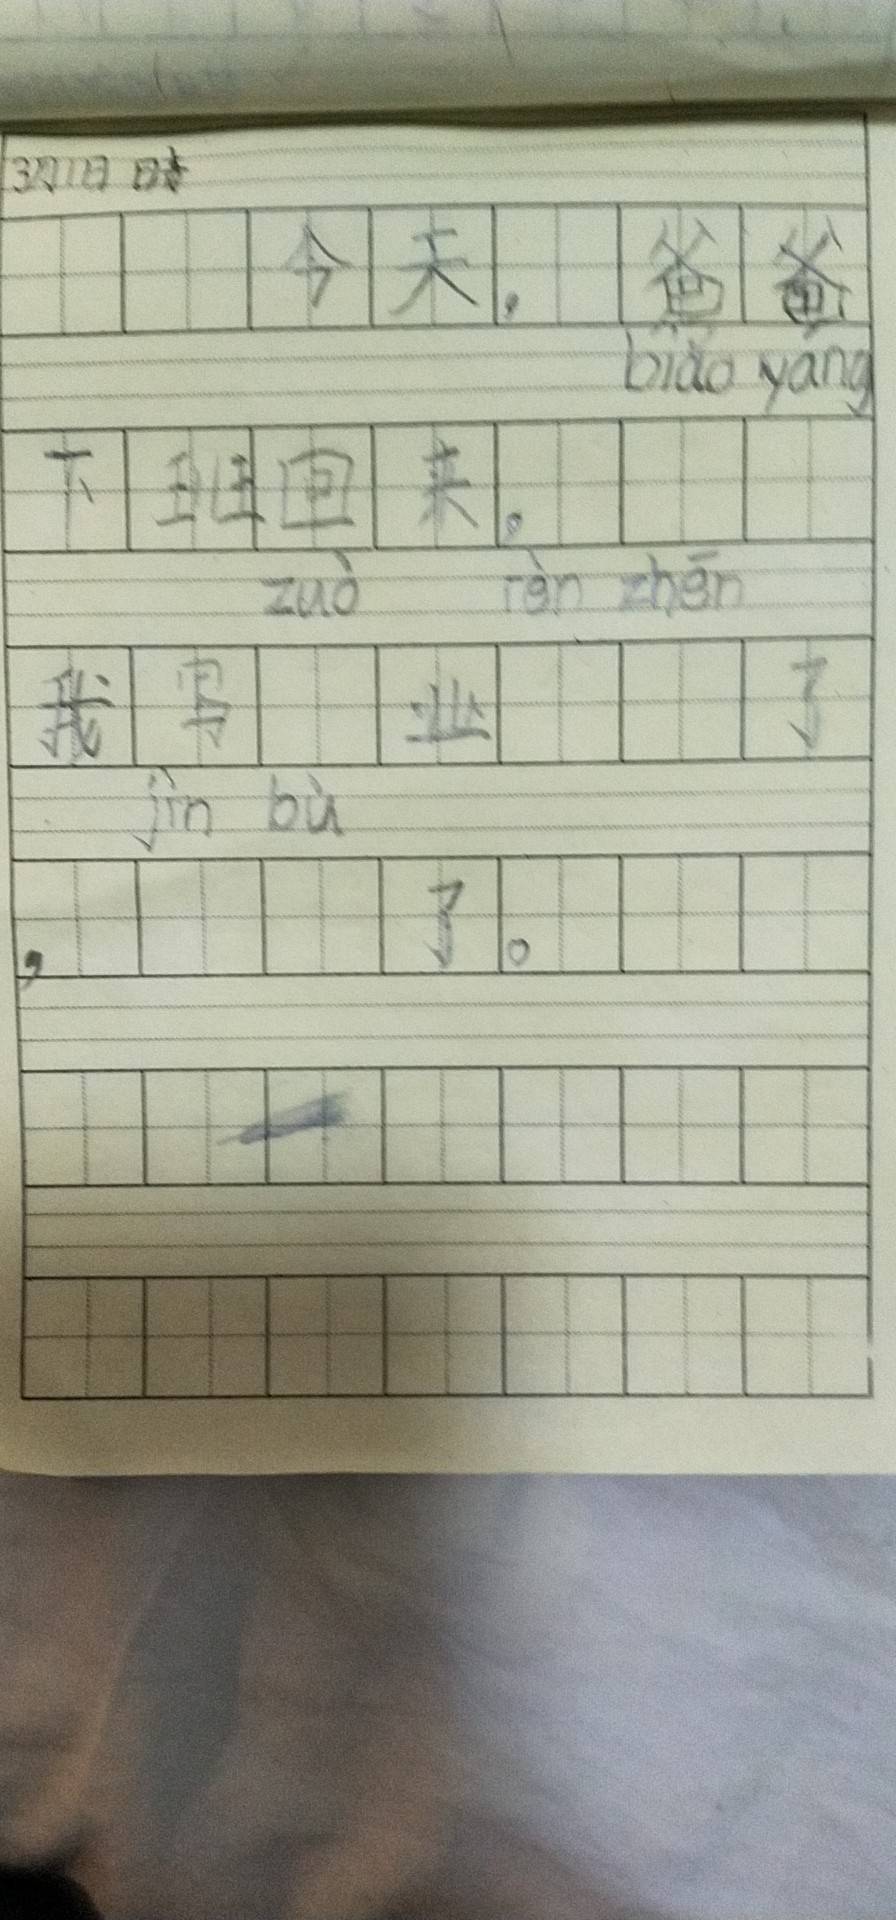 3月11日 时
今天，爸爸
biǎo yáng
下班回来，
zuò rèn zhēn
我写业了
jìn bù
，了。